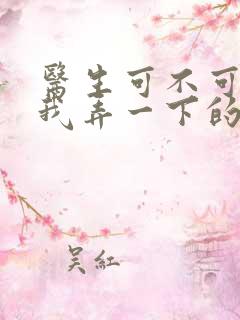 醫生可不可
我弄一下的
吴紅